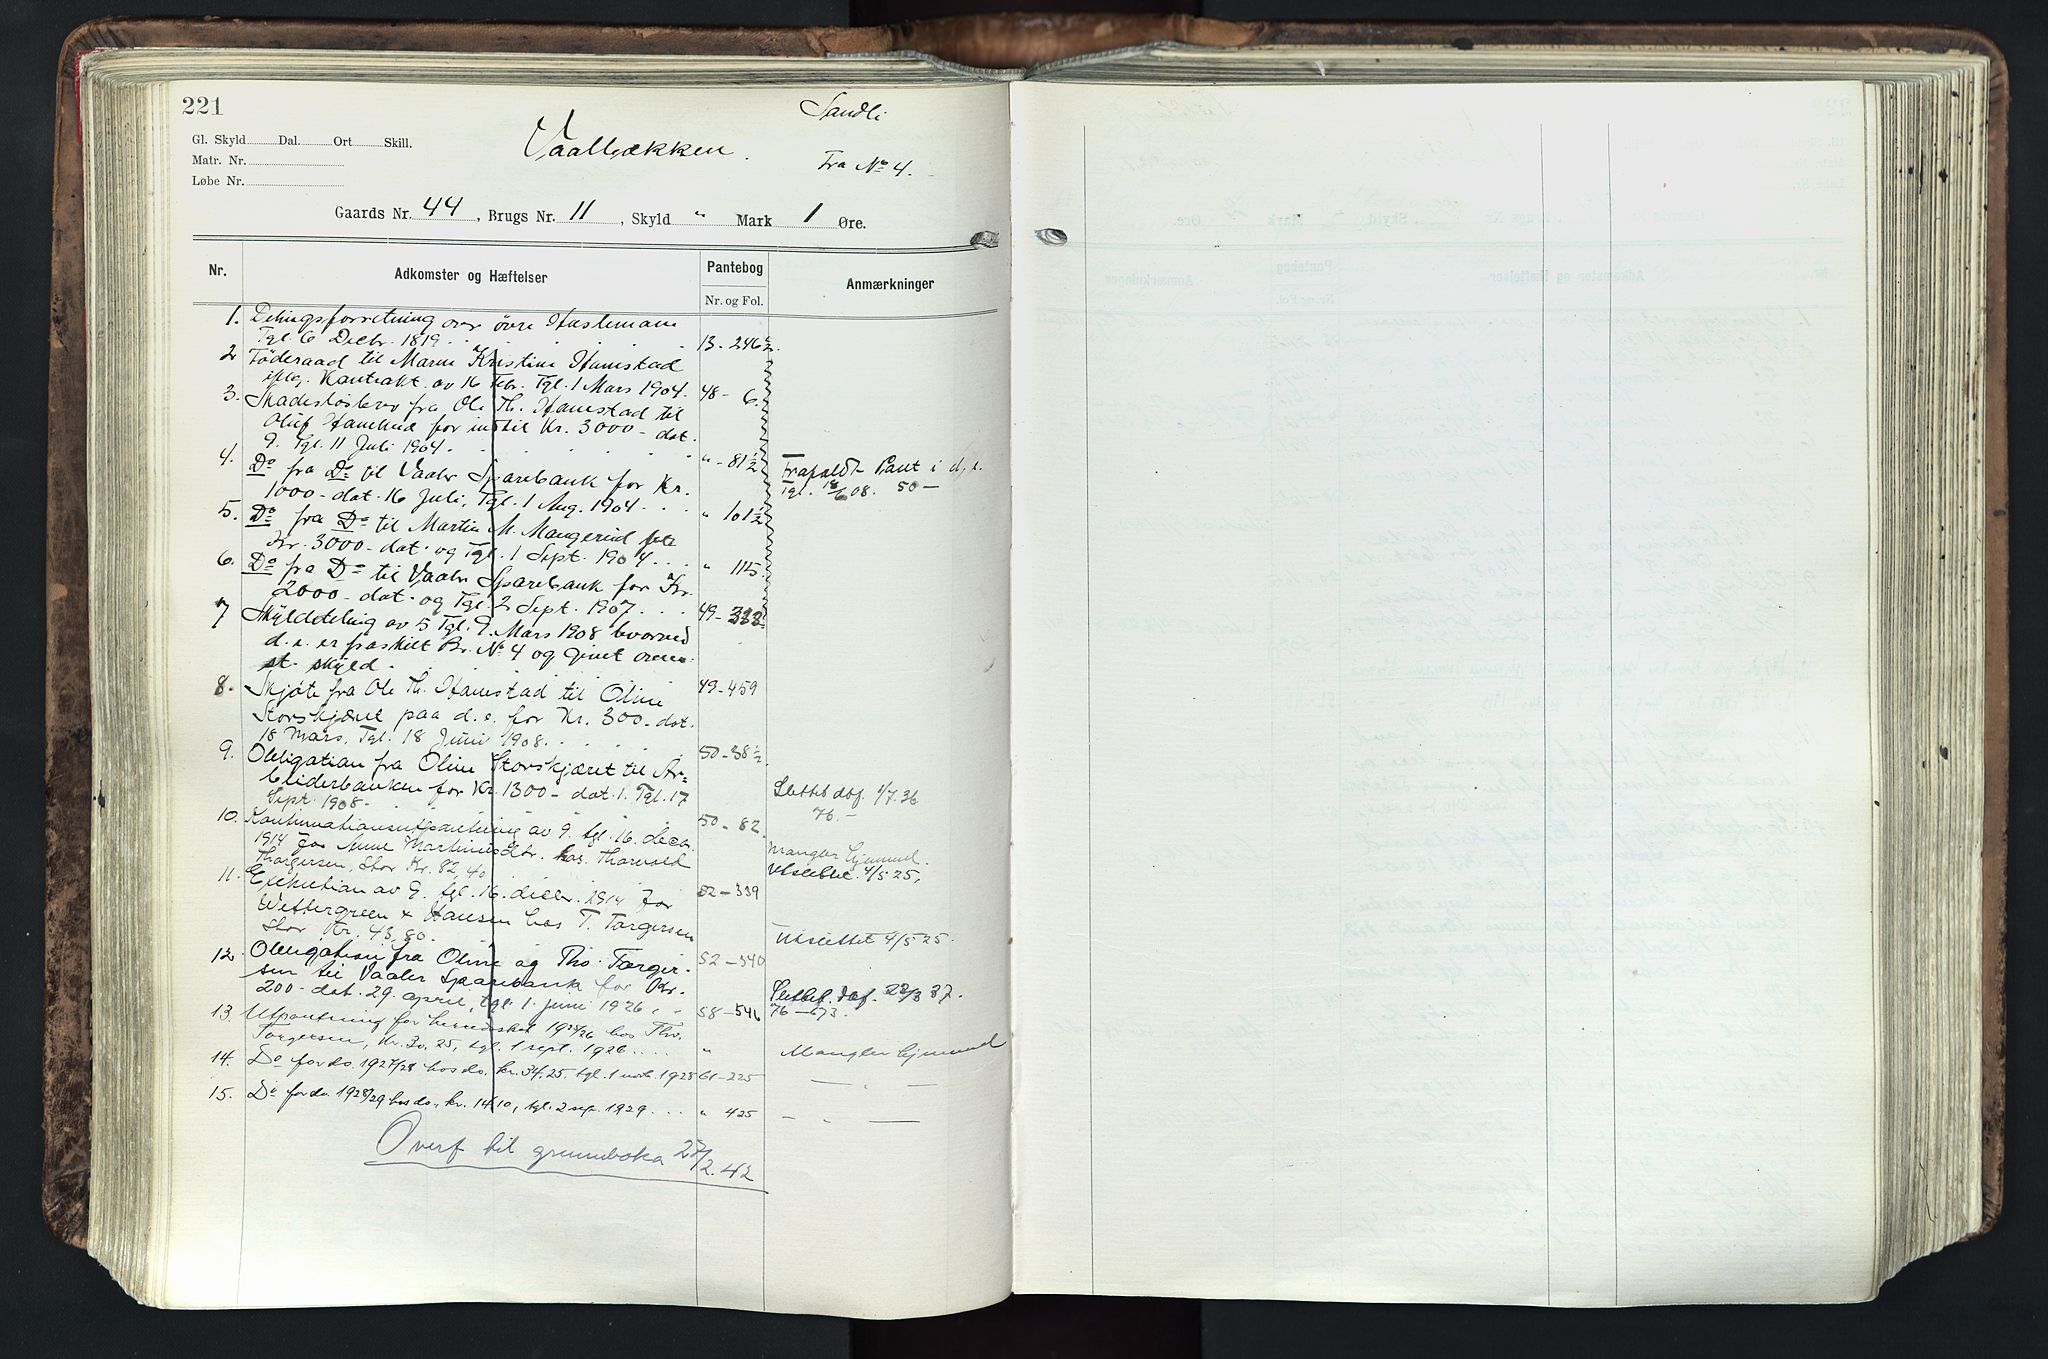 221
Sandli
Gl. Skyld Dal. Ort Skill.
Vaalbækken.
Matr. Nr.
Fra No 4.
Løbe Nr.
Gaards Nr. 44, Brugs Nr. 11, Skyld " Mark 1 Øre.
Nr. Adkomster og Hæftelser Pantebog Anmærkninger
Nr. og Fol.
1. Delingsforretning over øvre
Tgl. 6 Decbr. 1819. 13-246½
2 Føderaad til Marni Kristine Hamstad
ifølg. Kontrakt av 16 Febr. Tgl. 1 Mars 1904. 48-6.
3. Skadesløsbrev fra Ole Th. Hamstad til
Oluf for indtil Kr. 3000 - dat.
9. Tgl. 11 Juli 1904. " - 81½
4. Do fra Do til Vaaler Sparebank for Kr. Frafaldt Pant i d. e.
1000 - dat. 16 Juli, Tgl. 1 Aug. 1904 " 101½ Tgl. 18/6 08. 50 -
5. Do fra Do til Martin M. Maugerud for
Kr. 3000 - dat. og Tgl. 1 Sept. 1904 " 115
6. Do fra Do til Vaaler Sparebank for Kr.
2000 - dat. og Tgl. 2 Sept. 1907 49-333
7 Skylddeling av 5 Tgl. 9 Mars 1908 hvorved
d. e. er fraskilt Br. No 4 og givet
st. skyld. 49-459
8. Skjøte fra Ole Th. Hamstad til Oline
Storskjæret paa d. e. for Kr. 300 - dat.
18 Mars, Tgl. 18 Juni 1908. 50-38½
9. Obligation fra Oline Storskjæret til Ar=
beiderbanken for Kr. 1300 - dat. 1. Tgl. 17 Slettet daf. 1/7.36.
Sept. 1908. 50-82 76. -
10. Kontinuationsutpantning av 9. tgl. 16. decbr.
1914 for Anne Martinusdtr. hos Thorvald Mangler hjemmel.
Thorgersen, Stor Kr. 82,40 Utslettet 4/5 25,
11. Exekution av 9. tgl. 16. decbr. 1914 for 52-339
Wettergreen & Hansen hos T. Torgersen
Stor Kr. 43,80. Utslettet 4/5 25.
12. Obligation fra Oline og Tho. Torger- 52-340
sen til Vaaler Sparebank for Kr.
200 - dat. 29. april, tgl. 1. juni 1926 58-546 Slettet daf. 22/3 37. 76-673.
13. Utpantning for herredsskat 1925/26 hos Tho.
Torgersen, Kr. 30,25, tgl. 1 sept. 1926 " Mangler hjemmel
14. Do for do. 1927/28 hos do. kr. 34.25, tgl. 1 novb. 1928 61-225 — " —
15. Do for do. 1928/29 hos do., kr. 14.10, tgl. 2 sep. 1929 " 425 — " —
Overf til grunnboka 25/2.42